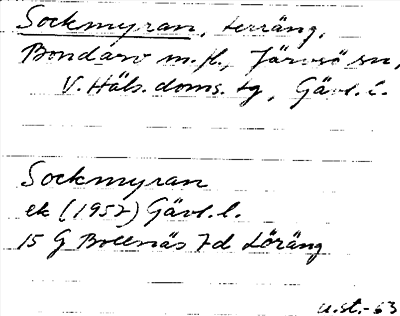 Sockmyran, terräng,
Bondarv m.fl., Järvsö sn,
V. Häls. doms. tg, Gävl. l.
Sockmyran
ek (1952) Gävl. l.
15 G Bollnäs 7d Löräng
u.st.-63